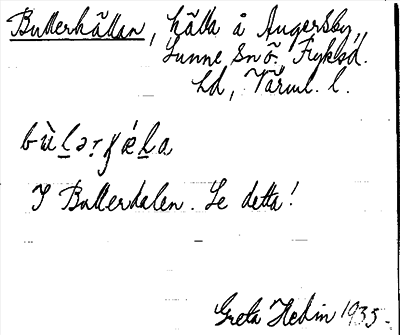 Bullerkällan, källa å Augersby,
Sunne Snö. Fryksd.
hd, Värml. l.
I Bullerdalen. Se detta!
Greta Hedin 1935.